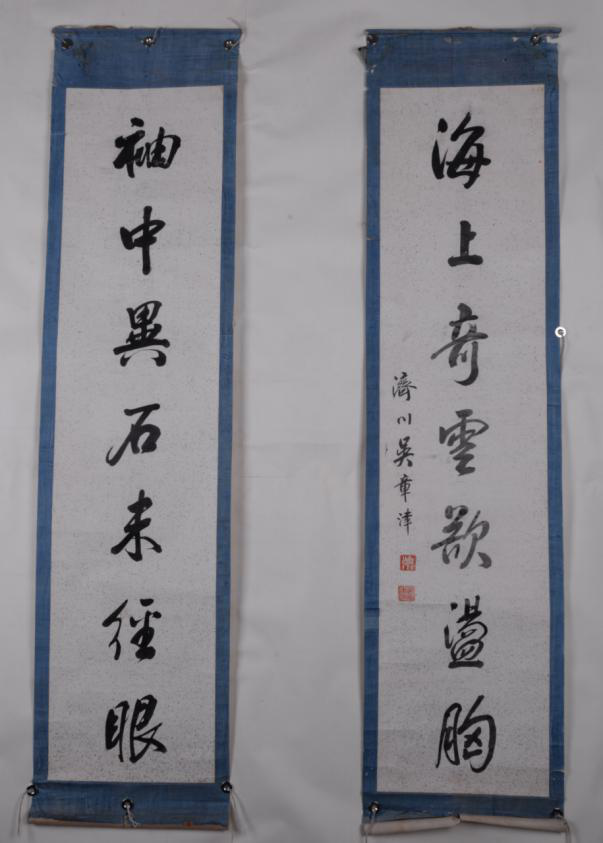 海上奇雲欲盪胸
濟川吳章津
袖中異石未經眼